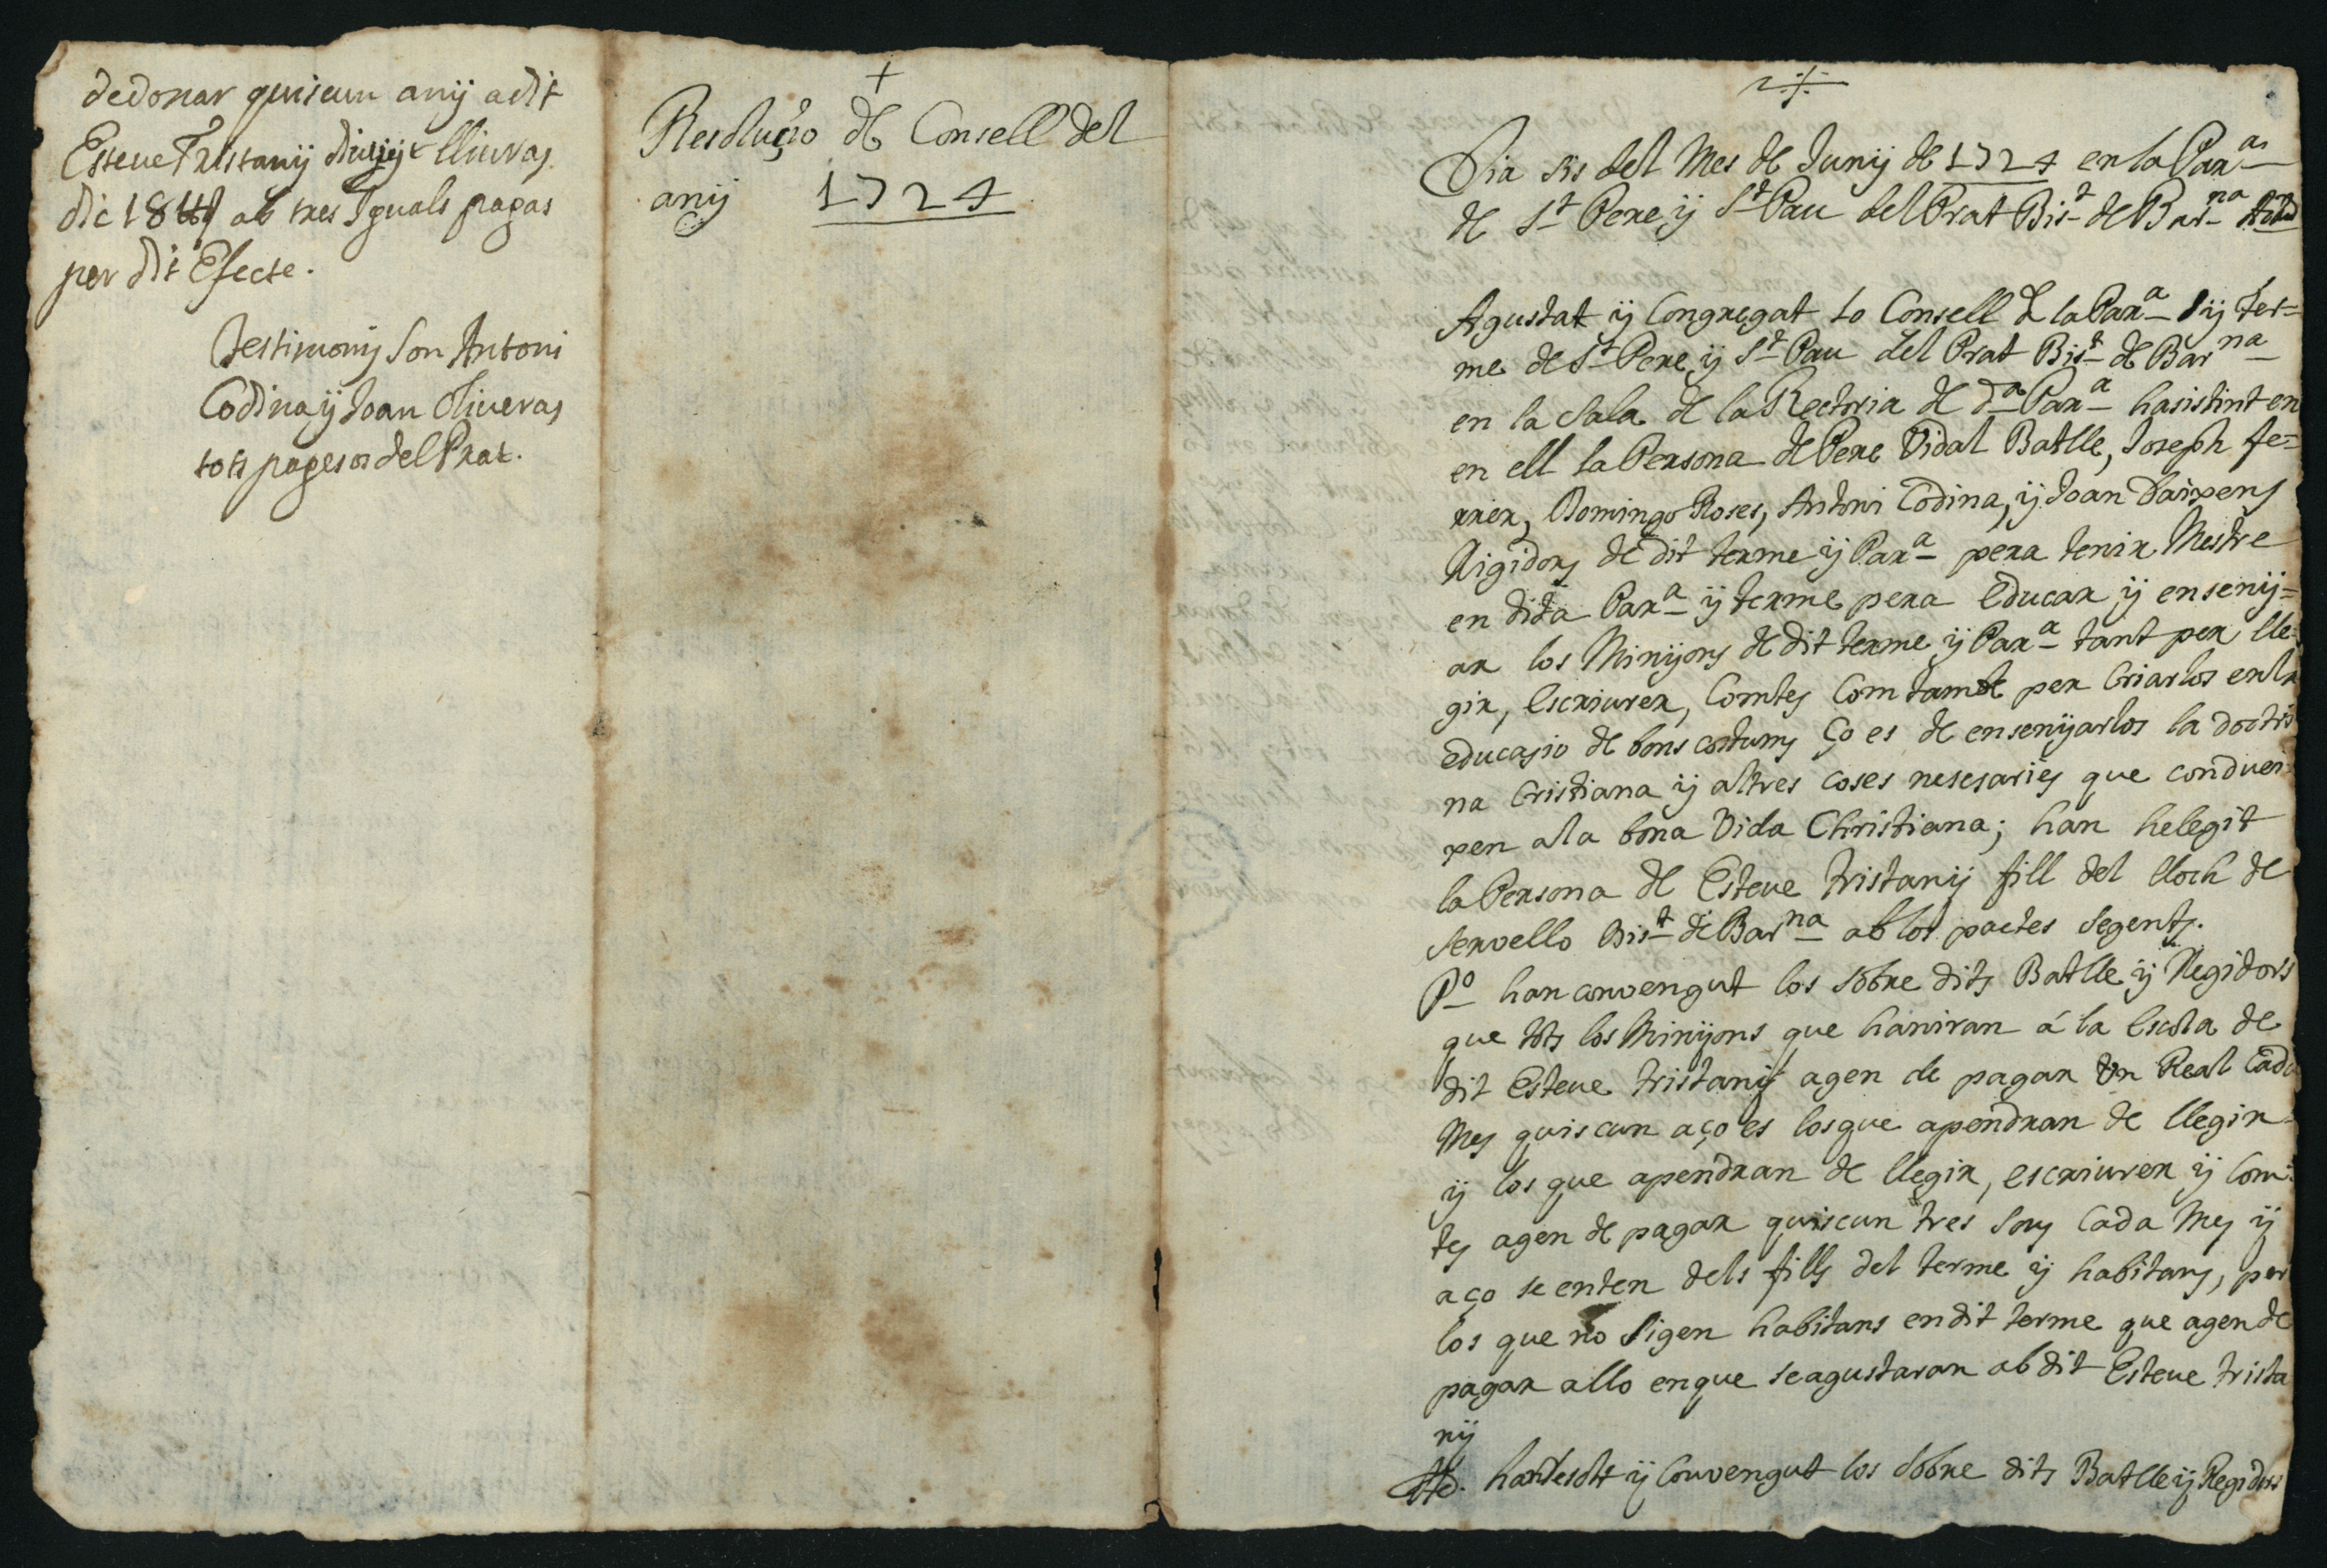 dedonar quiscun anij adit
Esteue Tristanij diuijt lliuras
dic 18 ll ab tres Iguals pagas
per dit Efecte.
Testimonij son Antoni
Codina ij Joan Oliueras
tots pagesos del Prat.
+
Resoluçio de Consell del
anij 1724
Dia sis del Mes de Junij de 1724 en la Par.ª
de S.t Pere ij S.t Pau del Prat Bis.t de Bar.na
Agustat ij Congregat lo Consell de la Par.ª ij ter=
me de S.t Pere ij S.t Pau del Prat Bis.t de Bar.na
en la sala de la Rectoria de d.ª Par.ª hasistint en
en ell la Persona de Pere Vidal Batlle, Joseph fe=
rrer, Domingo Roses, Antoni Codina, ij Joan
Rigidors de dit terme ij Par.ª pera tenir Mestre
en dita Par.ª ij terme pera educar ij ensenij=
ar los Minijons de dit terme ij Par.ª tant per lle=
gir, escriurer, Comtes Com tambe per Criarlos en la
educasio de bons costums ço es de ensenijarlos la doctri
na Cristiana ij altres coses nesesaries que conduei=
xen a la bona Vida Christiana; han helegit
la Persona de Esteue tristanij fill del lloch de
servello Bis.t de Bar.na ab los pactes segents.
P.º han convengut los sobre dits Batlle ij Regidors
que tots los Minijons que haniran á la escola de
dit Esteue tristanij agen de pagar Vn Real Cada
Mes quiscun aço es los que apendran de llegir
ij los que apendran de llegir, escriurer ij Com=
tes agen de pagar quiscun tres sous Cada Mes ij
aço se enten dels fills del terme ij habitans, per
los que no sigen habitans en dit terme que agen de
pagar allo en que se agustaran ab dit Esteue trista
nij
Ittd. han resolt ij Convengut los sobre dits Batlle ij Regidors